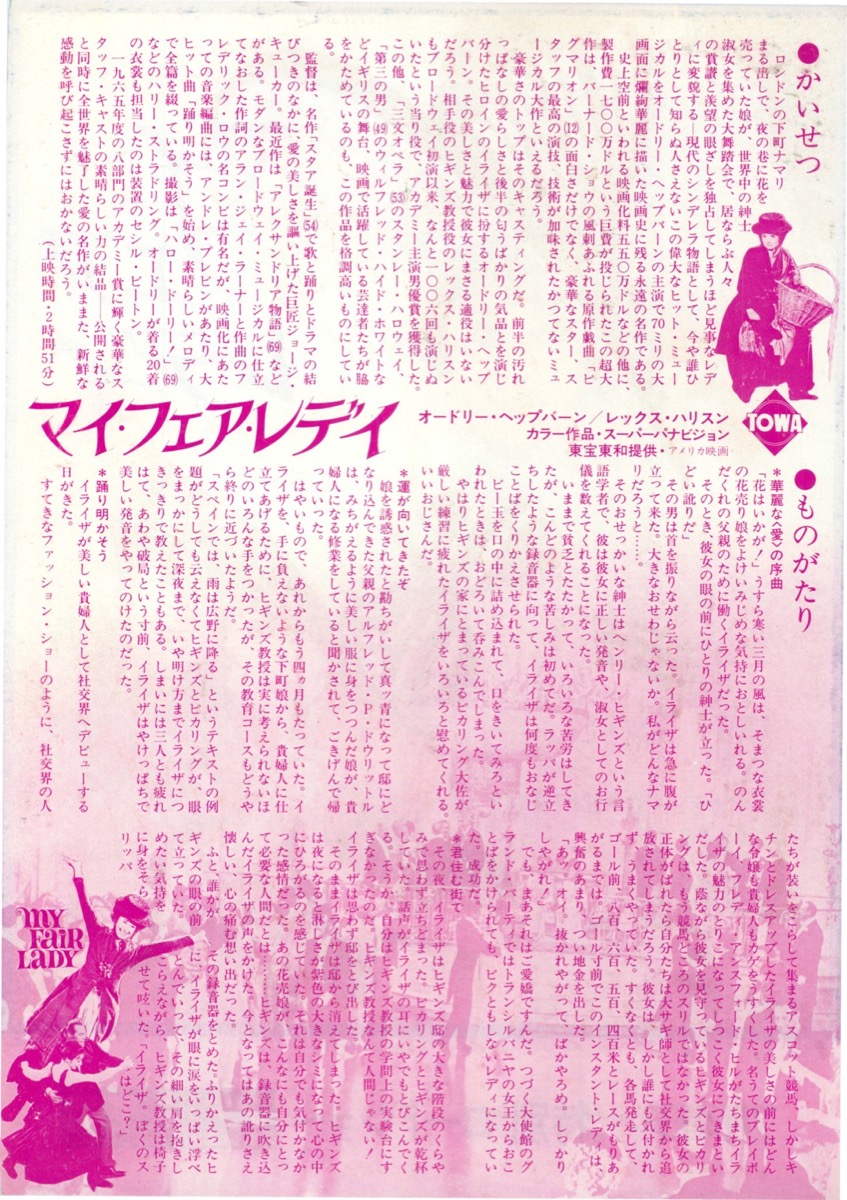 ●かいせつ
ロンドンの下町ナマリ
まる出しで、夜の巷に花を
売っていた娘が、世界中の紳士
淑女を集めた大舞踏会で、居ならぶ人々
の賞讃と羨望の眼ざしを独占してしまうほど見事なレデ
ィに変貌する―現代のシンデレラ物語として、今や誰ひ
とりとして知らぬ人さえないこの偉大なヒット・ミュー
ジカルをオードリー・ヘップバーンの主演で70ミリの大
画面に爛絢華麗に描いた映画史に残る永遠の名作である。
史上空前といわれる映画化料五五〇万ドルなどの他に、
製作費一七〇〇万ドルという巨費が投じられたこの超大
作は、バーナード・ショウの風刺あふれる原作戯曲「ピ
グマリオン」(12)の面白さだけでなく、豪華なスター、ス
タッフの最高の演技、技術が加味されたかつてないミュ
ージカル大作といえるだろう。
豪華さのトップはそのキャスティングだ。前半の汚れ
っぱなしの愛らしさと後半の匂うばかりの気品とを演じ
分けたヒロインのイライザに扮するオードリー・ヘップ
バーン。その美しさと魅力で彼女にまさる適役はいない
だろう。相手役のヒギンズ教授役のレックス・ハリスン
もブロードウェイ初演以来、なんと一〇〇六回も演じぬ
いたという当り役で、アカデミー主演男優賞を獲得した。
この他、「三文オペラ」(53)のスタンレー・ハロウェイ、
「第三の男」(49)のウィルフレッド・ハイド・ホワイトな
どイギリスの舞台、映画で活躍している芸達者たちが脇
をかためているのも、この作品を格調高いものにしてい
る。
監督は、名作「スタア誕生」(54)で歌と踊りとドラマの結
びつきのなかに、愛の美しさを謳い上げた巨匠ジョージ・
キューカー。最近作は「アレクサンドリア物語」(69)など
がある。モダンなブロードウェイ・ミュージカルに仕立
てなおした作詞のアラン・ジェイ・ラーナーと作曲のフ
レデリック・ロウの名コンビは有名だが、映画化にあた
っての音楽編曲には、アンドレ・プレビンがあたり、大
ヒット曲「踊り明かそう」を始め、素晴らしいメロディ
で全篇を綴っている。撮影は「ハロー・ドーリー！」(69)
などのハリー・ストラドリング。オードリーが着る20着
の衣裳も担当したのは装置のセシル・ビートン。
一九六五年度の八部門のアカデミー賞に輝く豪華なス
タッフ・キャストの素晴らしい力の結晶――公開される
と同時に全世界を魅了した愛の名作がいままた、新鮮な
感動を呼び起こさずにはおかないだろう。
(上映時間・2時間51分)
マイ・フェア・レディ
オードリー・ヘップバーン／レックス・ハリスン
カラー作品・スーパーパナビジョン
東宝東和提供・アメリカ映画
TOWA
●ものがたり
＊華麗な〈愛〉の序曲
「花はいかが！」うすら寒い三月の風は、そまつな衣裳
の花売り娘をよけいみじめな気持におとしいれる。のん
だくれの父親のために働くイライザだった。
そのとき、彼女の眼の前にひとりの紳士が立った。「ひ
どい訛りだ」
その男は首を振りながら云った。イライザは急に腹が
立って来た。大きなおせわじゃないか。私がどんなナマ
リだろうと……。
そのおせっかいな紳士はヘンリー・ヒギンズという言
語学者で、彼は彼女に正しい発音や、淑女としてのお行
儀を教えてくれることになった。
いままで貧乏とたたかって、いろいろな苦労はしてき
たが、こんどのような苦しみは初めてだ。ラッパが逆立
ちしたような録音器に向って、イライザは何度もおなじ
ことばをくりかえさせられた。
ビー玉を口の中に詰め込まれて、口をきいてみろとい
われたときは、おどろいて呑みこんでしまった。
やはりヒギンズの家にとまっているピカリング大佐が、
厳しい練習に疲れたイライザをいろいろと慰めてくれる。
いいおじさんだ。
＊運が向いてきたぞ
娘を誘惑されたと勘ちがいして真ッ青になって邸にど
なり込んできた父親のアルフレッド・P・ドウリットル
は、みちがえるように美しい服に身をつつんだ娘が、貴
婦人になる修業をしていると聞かされて、ごきげんで帰
っていった。
はやいもので、あれからもう四ヵ月もたっていた。イ
ライザを、手に負えないような下町娘から、貴婦人に仕
立てあげるために、ヒギンズ教授は実に考えられないほ
どのいろんな手をつかったが、その教育コースもどうや
ら終りに近づいたようだ。
「スペインでは、雨は広野に降る」というテキストの例
題がどうしても云えなくてヒギンズとピカリングが、眼
をまっかにして深夜まで、いや明け方までイライザにつ
きっきりで教えたこともある。しまいには三人とも疲れ
はて、あわや破局という寸前、イライザはやけっぱちで
美しい発音をやってのけたのだった。
＊踊り明かそう
イライザが美しい貴婦人として社交界へデビューする
日がきた。
すてきなファッション・ショーのように、社交界の人
たちが装いをこらして集まるアスコット競馬。しかしキ
チンとドレスアップしたイライザの美しさの前にはどん
な令嬢も貴婦人もカゲをうすくした。名うてのプレイボ
ーイ、フレディ・アンスフォード・ヒルがたちまちイラ
イザの魅力のとりこになってしつこく彼女につきまとい
だした。蔭ながら彼女を見守っているヒギンズとピカリ
ングは、もう競馬どころのスリルではなかった。彼女の
正体がばれたら自分たちは大サギ師として社交界から追
放されてしまうだろう。彼女は、しかし誰にも気付かれ
ず、うまくやっていた。すくなくとも、各馬発走して、
ゴール前、八百、六百、五百、四百米とレースがもりあ
がるまでは。ゴール寸前でこのインスタント・レディは、
興奮のあまり、つい地金を出した。
「あッ。オイ。抜かれやがって、ばかやろめ。しっかり
しやがれ！」
でも、まあそれはご愛嬌ですんだ。つづく大使館のグ
ランド・パーティではトランシルバニヤの女王からおこ
とばをかけられても、ビクともしないレディになってい
た。成功だ。
＊君住む街で
その夜、イライザはヒギンズ邸の大きな階段のくらや
みで思わず立ちどまった。ピカリングとヒギンズが乾杯
していた。話声がイライザの耳にいやでもとびこんでく
る。そうか、自分はヒギンズ教授の学問上の実験台にす
ぎなかったのだ。ヒギンズ教授なんて人間じゃない！
イライザは思わず邸をとび出した。
そのままイライザは邸から消えてしまった。ヒギンズ
は夜になると淋しさが紫色の大きなシミになって心の中
にひろがるのを感じていた。それは自分でも気付かなか
った感情だった。あの花売娘が、こんなにも自分にとっ
て必要な人間だとは……ヒギンズは、録音器に吹き込
んだイライザの声をかけた。今となってはあの訛りさえ
懐しい、心の痛む想い出だった。
ふと、誰かが、その録音器をとめた。ふりかえったヒ
ギンズの眼の前に、イライザが眼に涙をいっぱい浮べ
て立っていた。とんでいって、その細い肩を抱きし
めたい気持をこらえながら、ヒギンズ教授は椅子
に身をそらせて呟いた。「イライザ。ぼくのス
リッパはどこ？」
MY
FAIR
LADY